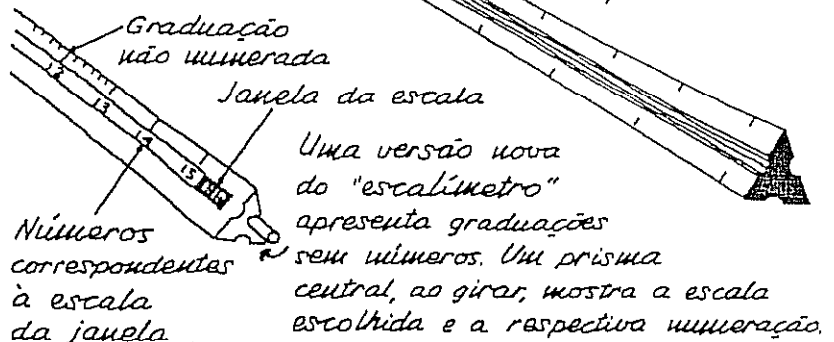 Graduação
não numerada
Janela da escala
12
13
14
15
Números
correspondentes
à escala
da janela
Uma versão nova
do "escalímetro"
apresenta graduações
sem números. Um prisma
central, ao girar, mostra a escala
escolhida e a respectiva numeração.